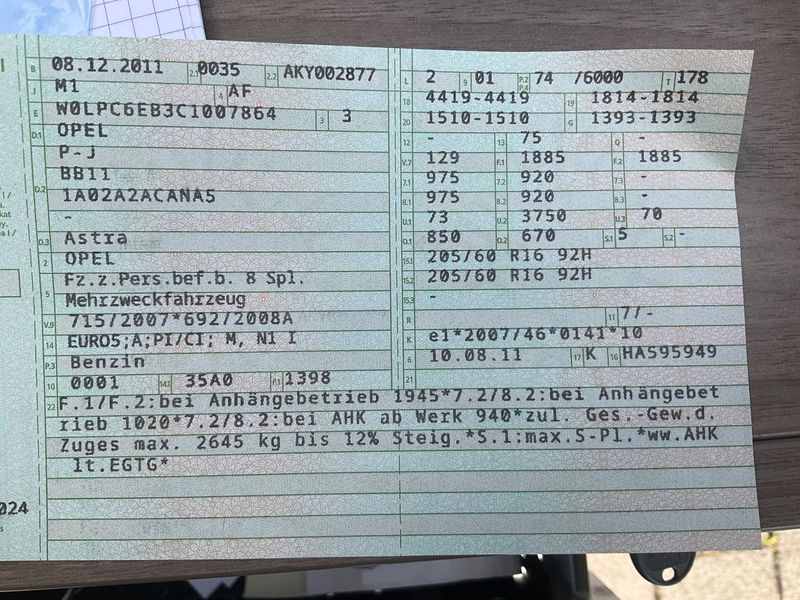 B 08.12.2011 2.1 0035 2.2 AKY002877
J M1 4 AF
E W0LPC6EB3C1007864 3 3
D.1 OPEL
D.2 P-J
BB11
1A02A2ACANA5
-
D.3 Astra
2 OPEL
5 Fz.z.Pers.bef.b. 8 Spl.
Mehrzweckfahrzeug
V.9 715/2007*692/2008A
14 EURO5;A;PI/CI; M, N1 I
P.3 Benzin
10 0001 14.1 35A0 P.1 1398
L 2 9 01 P.2 P.4 74 /6000 T 178
18 4419-4419 19 1814-1814
20 1510-1510 G 1393-1393
12 - 13 75 Q -
V.7 129 F.1 1885 F.2 1885
7.1 975 7.2 920 7.3 -
8.1 975 8.2 920 8.3 -
U.1 73 U.2 3750 U.3 70
O.1 850 O.2 670 S.1 5 S.2 -
15.1 205/60 R16 92H
15.2 205/60 R16 92H
15.3 -
R 11 7/-
K e1*2007/46*0141*10
6 10.08.11 17 K 16 HA595949
21
22 F.1/F.2:bei Anhängebetrieb 1945*7.2/8.2:bei Anhängebet
rieb 1020*7.2/8.2:bei AHK ab Werk 940*zul. Ges.-Gew.d.
Zuges max. 2645 kg bis 12% Steig.*S.1:max.S-Pl.*ww.AHK
lt.EGTG*
024